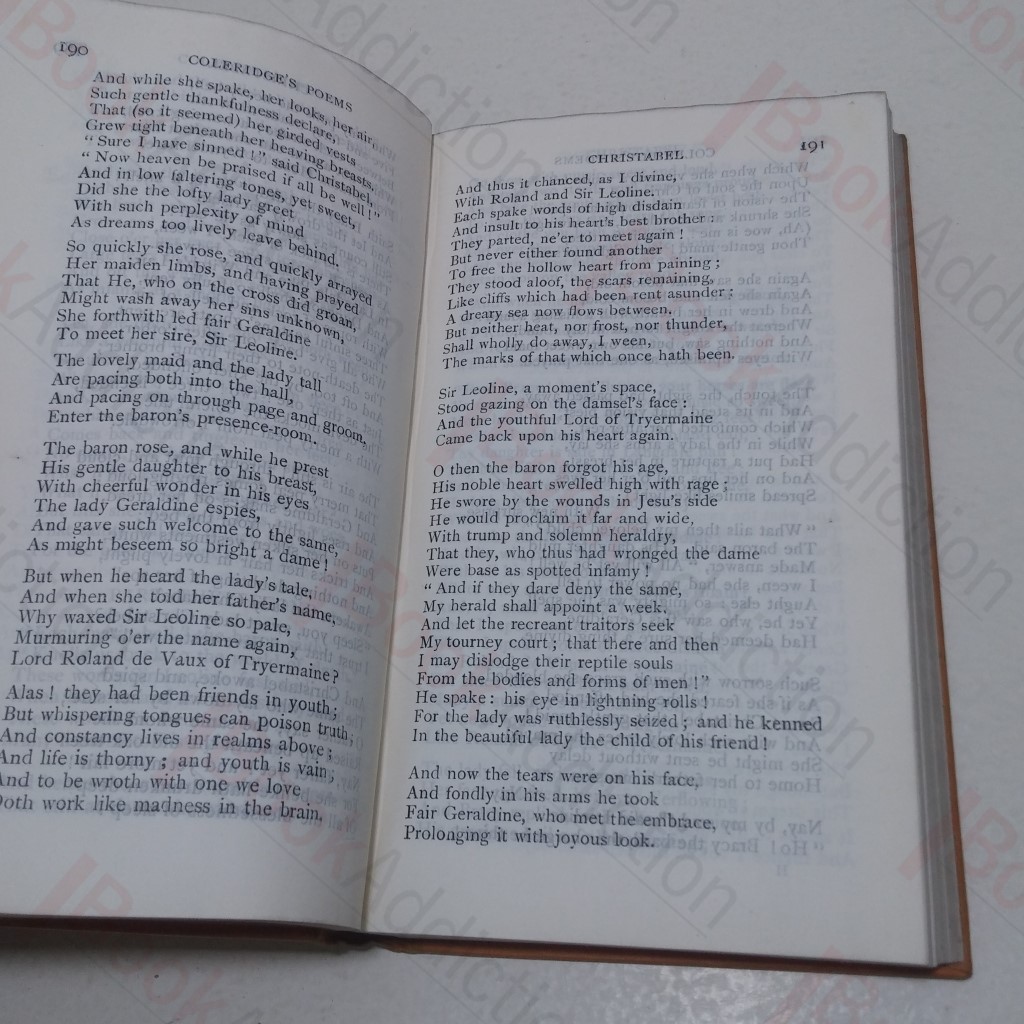 190
COLERIDGE'S POEMS
And while she spake, her looks, her air
Such gentle thankfulness declare,
That (so it seemed) her girded vests
Grew tight beneath her heaving breasts.
"Sure I have sinned!" said Christabel,
"Now heaven be praised if all be well!"
And in low faltering tones, yet sweet,
Did she the lofty lady greet
With such perplexity of mind
As dreams too lively leave behind.
So quickly she rose, and quickly arrayed
Her maiden limbs, and having prayed
That He, who on the cross did groan,
Might wash away her sins unknown,
She forthwith led fair Geraldine
To meet her sire, Sir Leoline.
The lovely maid and the lady tall
Are pacing both into the hall,
And pacing on through page and groom,
Enter the baron's presence-room.
The baron rose, and while he prest
His gentle daughter to his breast,
With cheerful wonder in his eyes
The lady Geraldine espies,
And gave such welcome to the same,
As might beseem so bright a dame!
But when he heard the lady's tale,
And when she told her father's name,
Why waxed Sir Leoline so pale,
Murmuring o'er the name again,
Lord Roland de Vaux of Tryermaine?
Alas! they had been friends in youth;
But whispering tongues can poison truth;
And constancy lives in realms above;
And life is thorny; and youth is vain;
And to be wroth with one we love
Doth work like madness in the brain.
CHRISTABEL
191
And thus it chanced, as I divine,
With Roland and Sir Leoline.
Each spake words of high disdain
And insult to his heart's best brother:
They parted, ne'er to meet again!
But never either found another
To free the hollow heart from paining;
They stood aloof, the scars remaining,
Like cliffs which had been rent asunder;
A dreary sea now flows between.
But neither heat, nor frost, nor thunder,
Shall wholly do away, I ween,
The marks of that which once hath been.
Sir Leoline, a moment's space,
Stood gazing on the damsel's face:
And the youthful Lord of Tryermaine
Came back upon his heart again.
O then the baron forgot his age,
His noble heart swelled high with rage;
He swore by the wounds in Jesu's side
He would proclaim it far and wide,
With trump and solemn heraldry,
That they, who thus had wronged the dame
Were base as spotted infamy!
"And if they dare deny the same,
My herald shall appoint a week,
And let the recreant traitors seek
My tourney court; that there and then
I may dislodge their reptile souls
From the bodies and forms of men!"
He spake: his eye in lightning rolls!
For the lady was ruthlessly seized; and he kenned
In the beautiful lady the child of his friend!
And now the tears were on his face,
And fondly in his arms he took
Fair Geraldine, who met the embrace,
Prolonging it with joyous look.